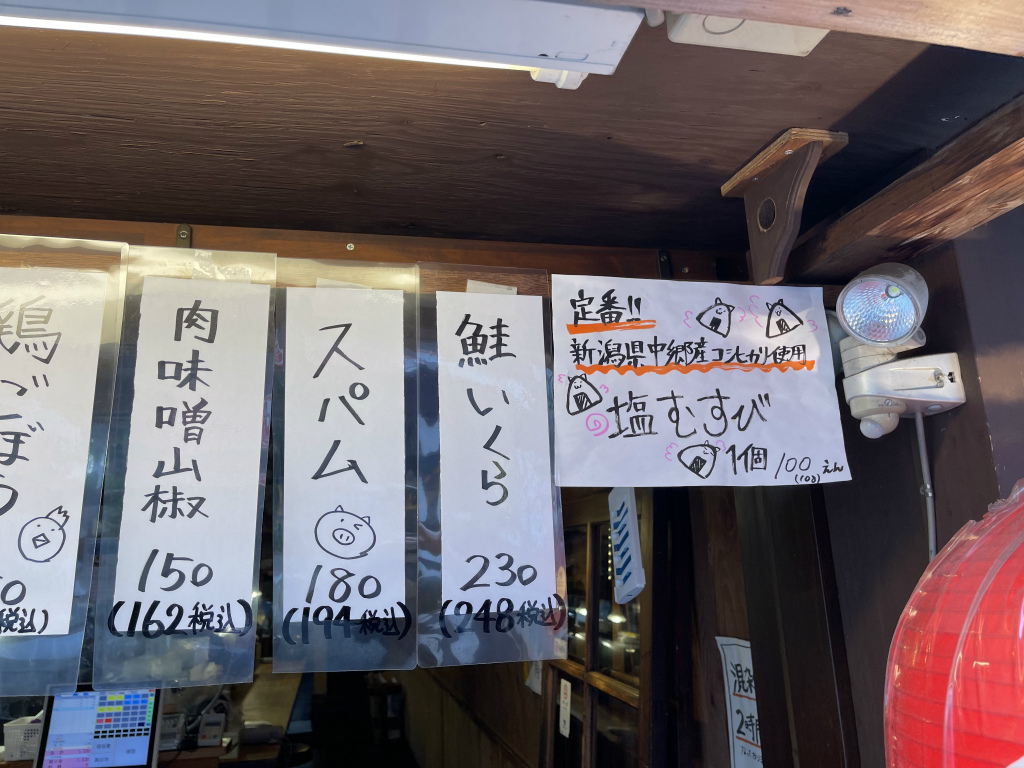 定番!!
新潟県中郷産コシヒカリ使用
塩むすび
1個 100えん
(108)
鮭いくら
230
(248税込)
スパム
180
(194税込)
肉味噌山椒
150
(162税込)
鶏ごぼう
0
税込)
混雑
2時間